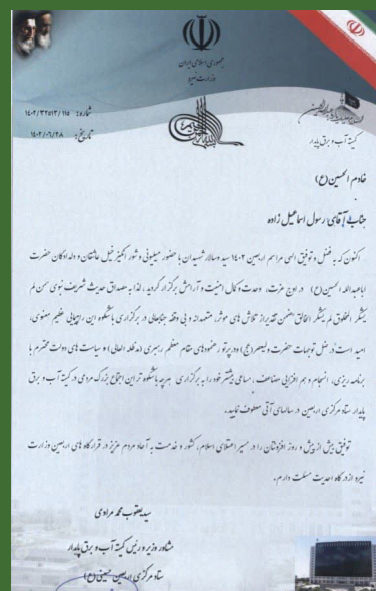 جمهوری اسلامی ایران
وزارت نیرو
شماره: ۱۴۰۲/۳۲۵۱۳/۱۱۵
تاریخ: ۱۴۰۲/۰۶/۲۸
کمیته آب و برق پایدار
خادم الحسین (ع)
جناب آقای رسول اسماعیل زاده
اکنون که به فضل و توفیق الهی مراسم اربعین ۱۴۰۲ سید و سالار شهیدان با حضور میلیونی و شور انگیز خیل عاشقان و دلدادگان حضرت
اباعبدالله الحسین (ع) در اوج عزت، وحدت و کمال امنیت و آرامش برگزار گردید، لذا به مصداق حدیث شریف نبوی من لم
یشکر المخلوق لم یشکر الخالق ضمن تقدیر از تلاش های موثر، متعهدانه و بی وقفه جنابعالی در برگزاری باشکوه این راهپیمایی عظیم معنوی،
امید است در ظل توجهات حضرت ولیعصر (عج) و در پرتو رهنمودهای مقام معظم رهبری (مد ظله العالی) و سیاست های دولت محترم با
برنامه ریزی، انسجام و هم افزایی مضاعف، مساعی بیشتر خود را به برگزاری هرچه باشکوه تر این اجتماع بزرگ مردمی در کمیته آب و برق
پایدار ستاد مرکزی اربعین در سالهای آتی معطوف نمایید.
توفیق بیش از پیش و روز افزونتان را در مسیر اعتلای اسلام، کشور و خدمت به آحاد مردم عزیز در قرارگاه های اربعین وزارت
نیرو از درگاه احدیت مسئلت دارم.
سید یعقوب محمد مرادی
مشاور وزیر و رئیس کمیته آب و برق پایدار
ستاد مرکزی اربعین حسینی (ع)